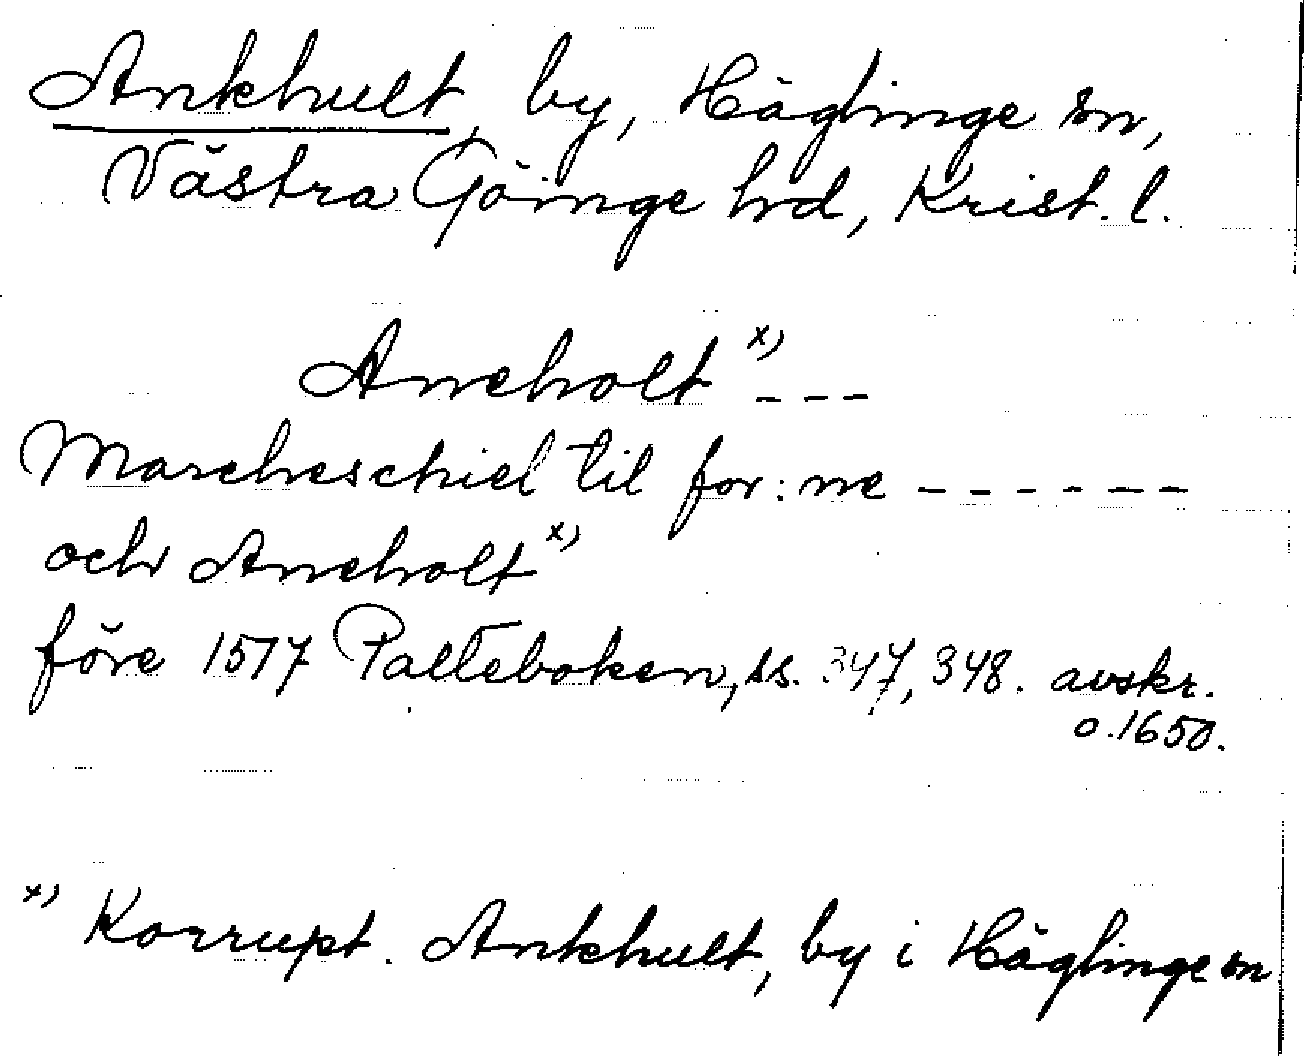 Ankhult, by, Häglinge sn,
Västra Göinge hrd, Krist. l.
Ancholt x) ---
Marcheschiel til for: ne ------
och Ancholt x)
före 1517 Palteboken, ss. 347, 348. avskr.
o. 1650.
x) Korrupt. Ankhult, by i Häglinge sn